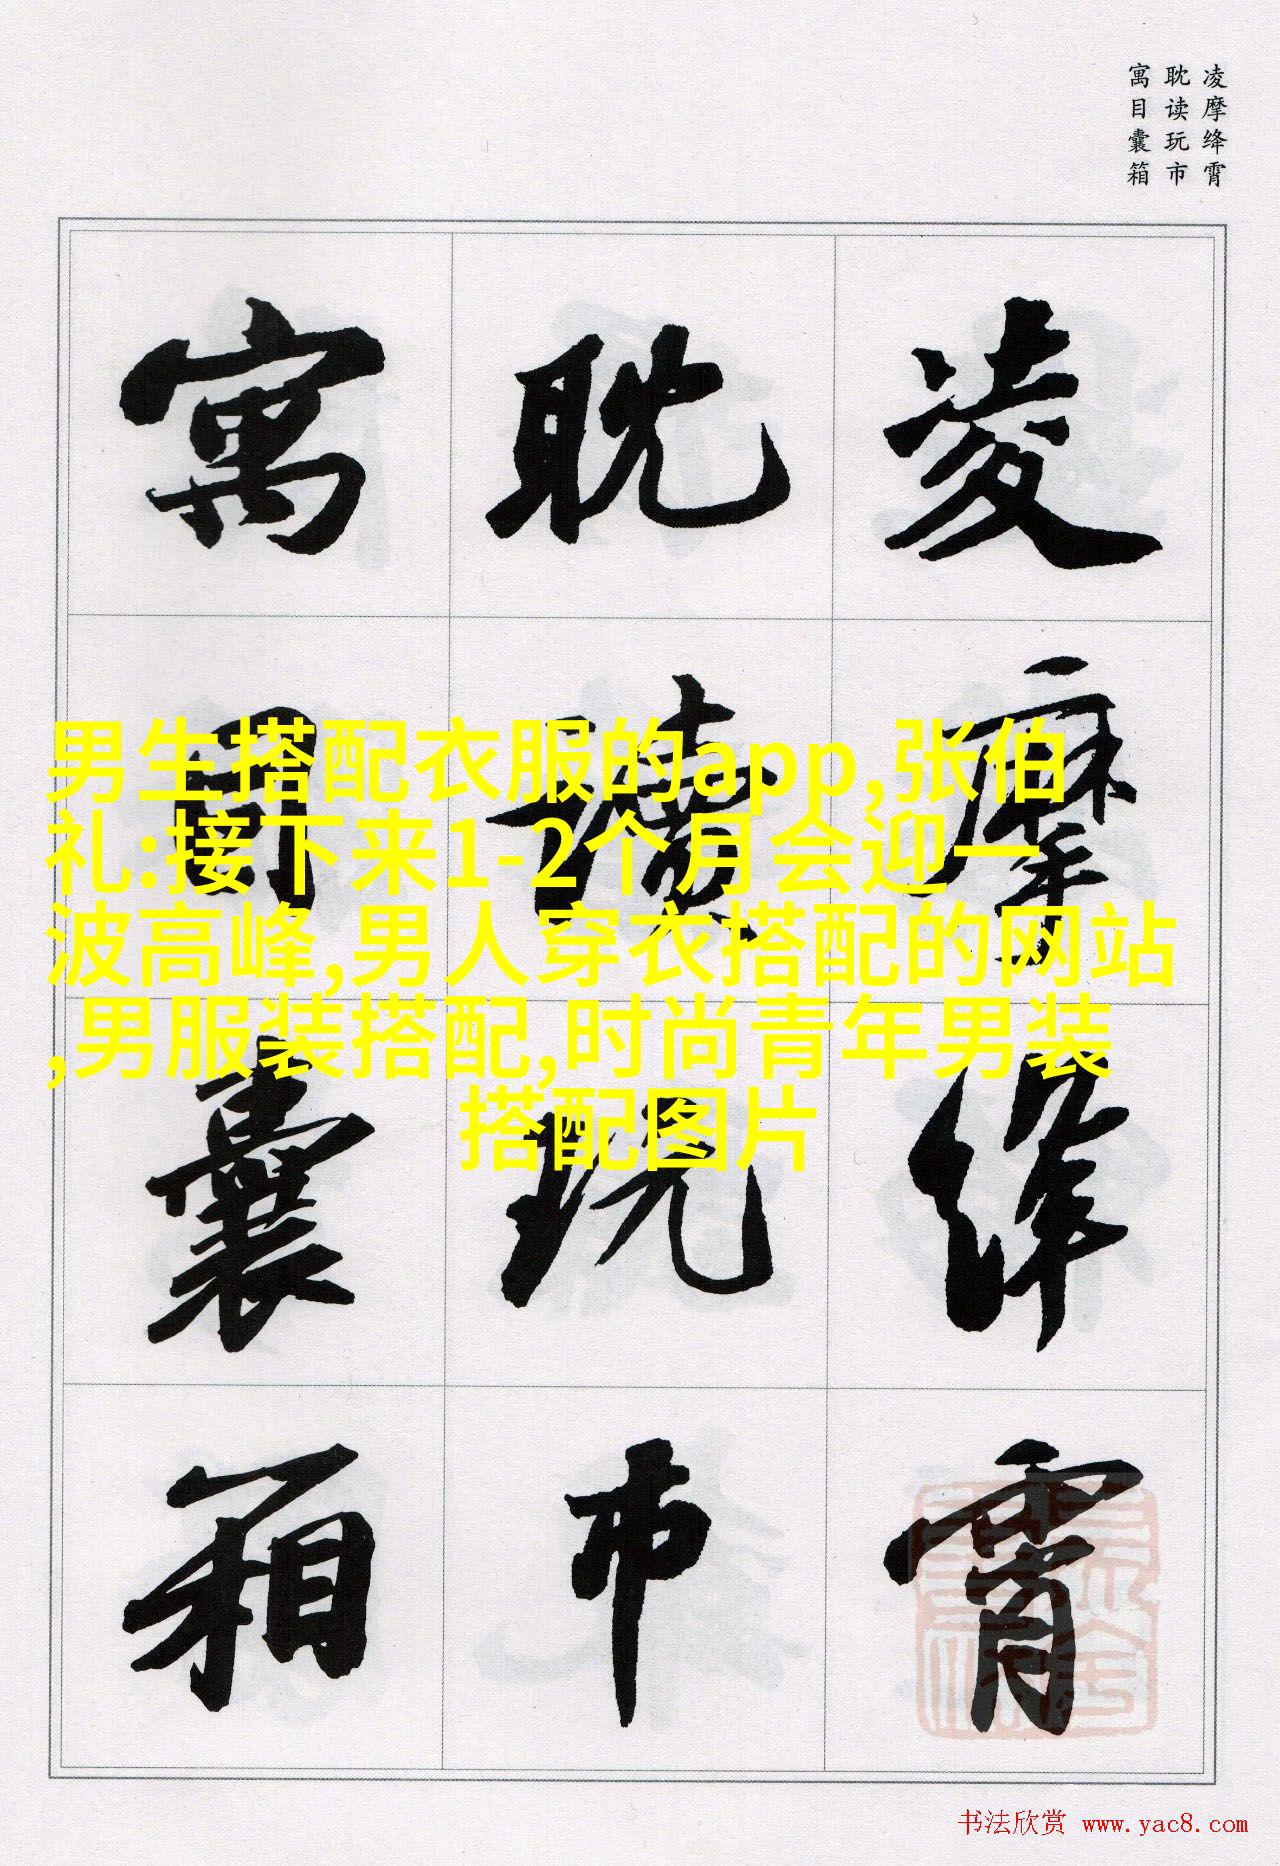 凌摩绛霄
耽读玩市
寓目囊箱
凌摩绛霄
耽读玩市
寓目囊箱
男生搭配衣服的app,张伯
礼:接下来1-2个月会迎一
波高峰,男人穿衣搭配的网站
,男服装搭配,时尚青年男装
搭配图片
书法欣赏 www.yac8.com